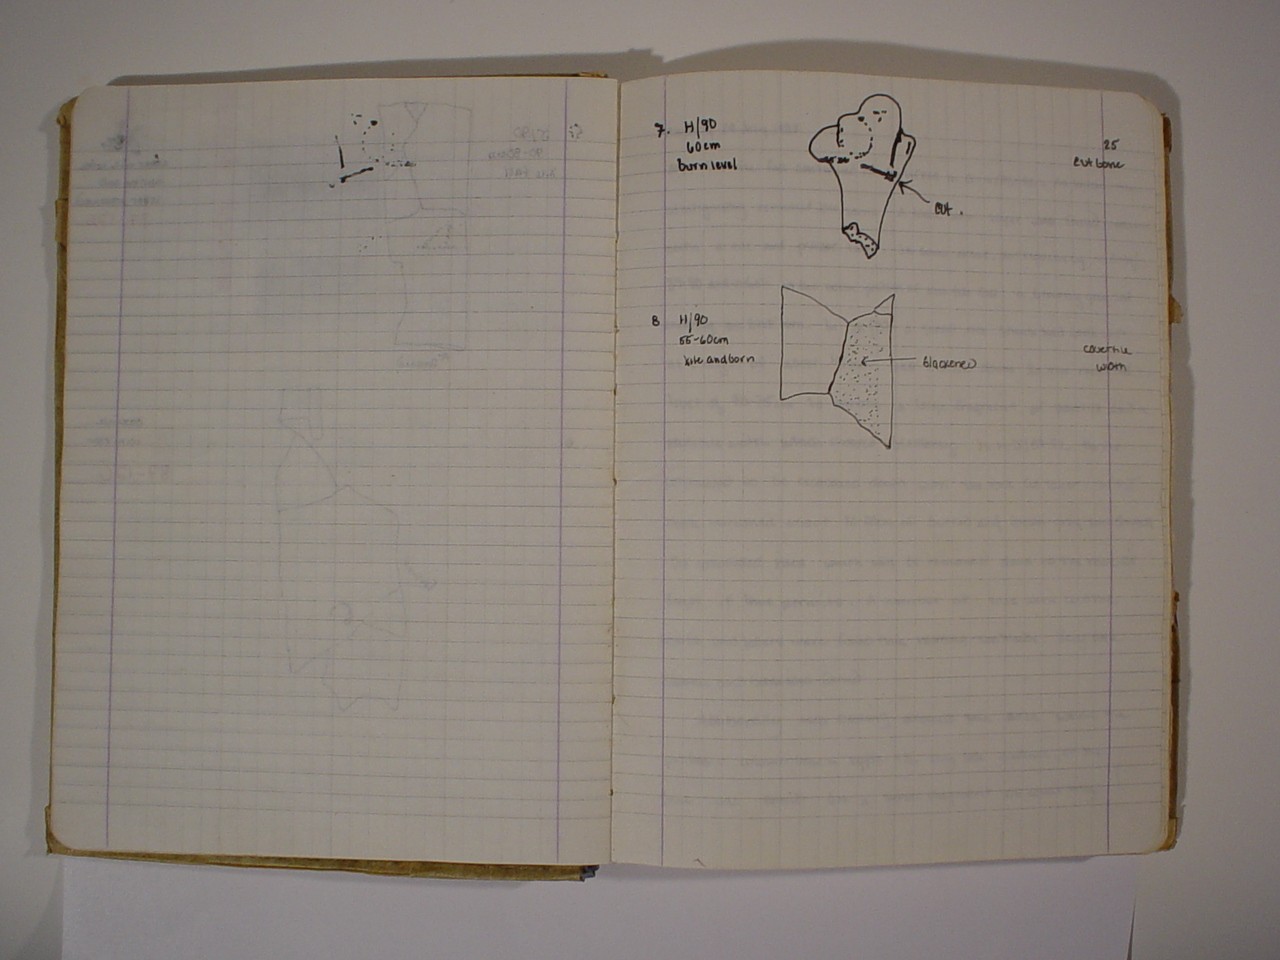 7. H/90
60cm
burn level
25
cut bone
cut.
8 H/90
55-60cm
tile and burn
blackened
cover tile